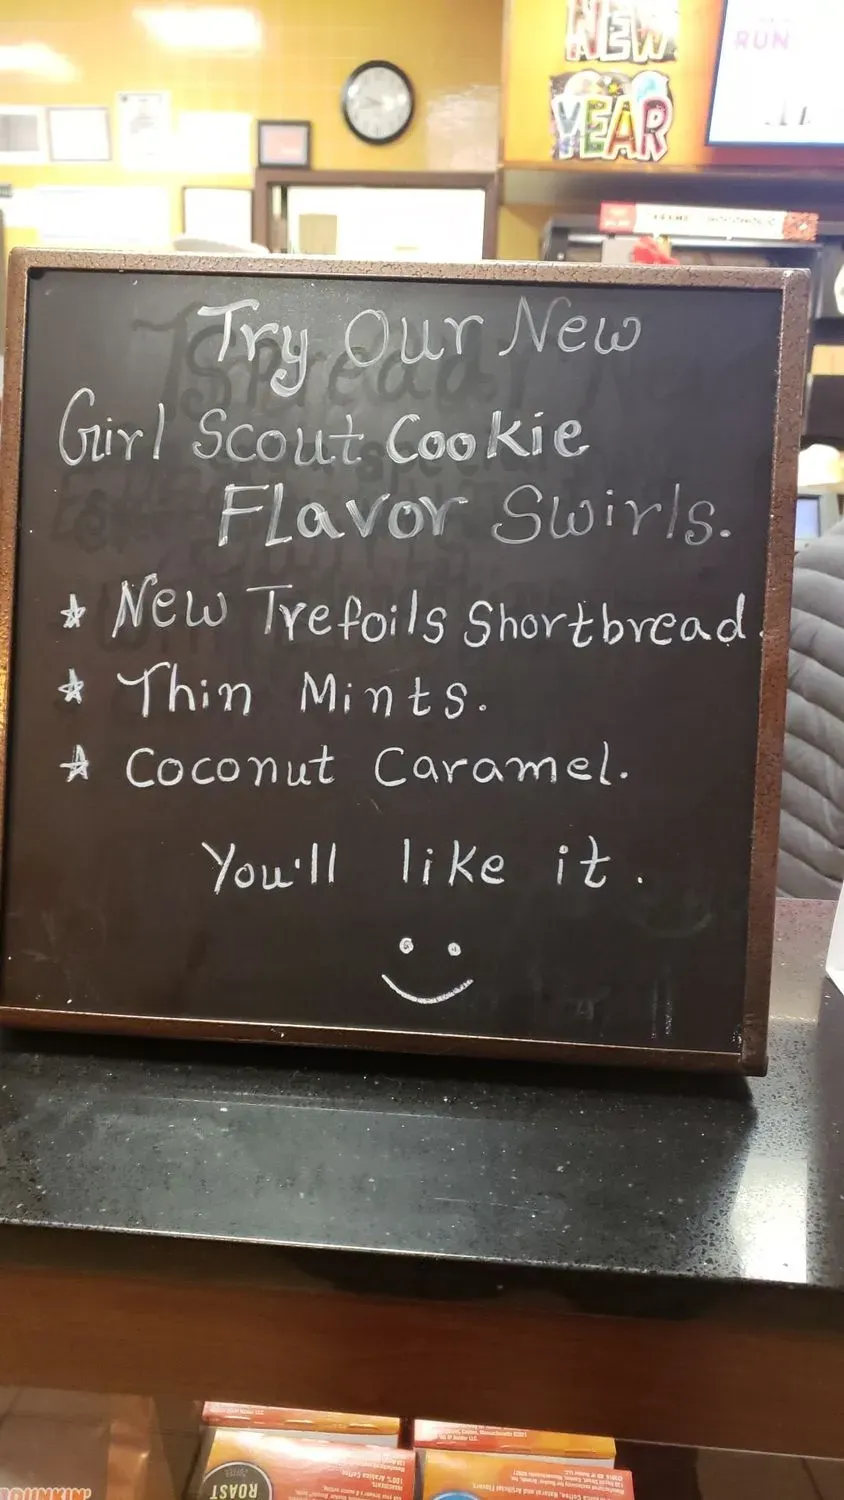 NEW
YEAR
RUN
Try Our New
Girl Scout Cookie
FLavor Swirls.
* New Trefoils Shortbread.
* Thin Mints.
* Coconut Caramel.
You'll like it.
DUNKIN'
ROAST
100% Arabica Coffee